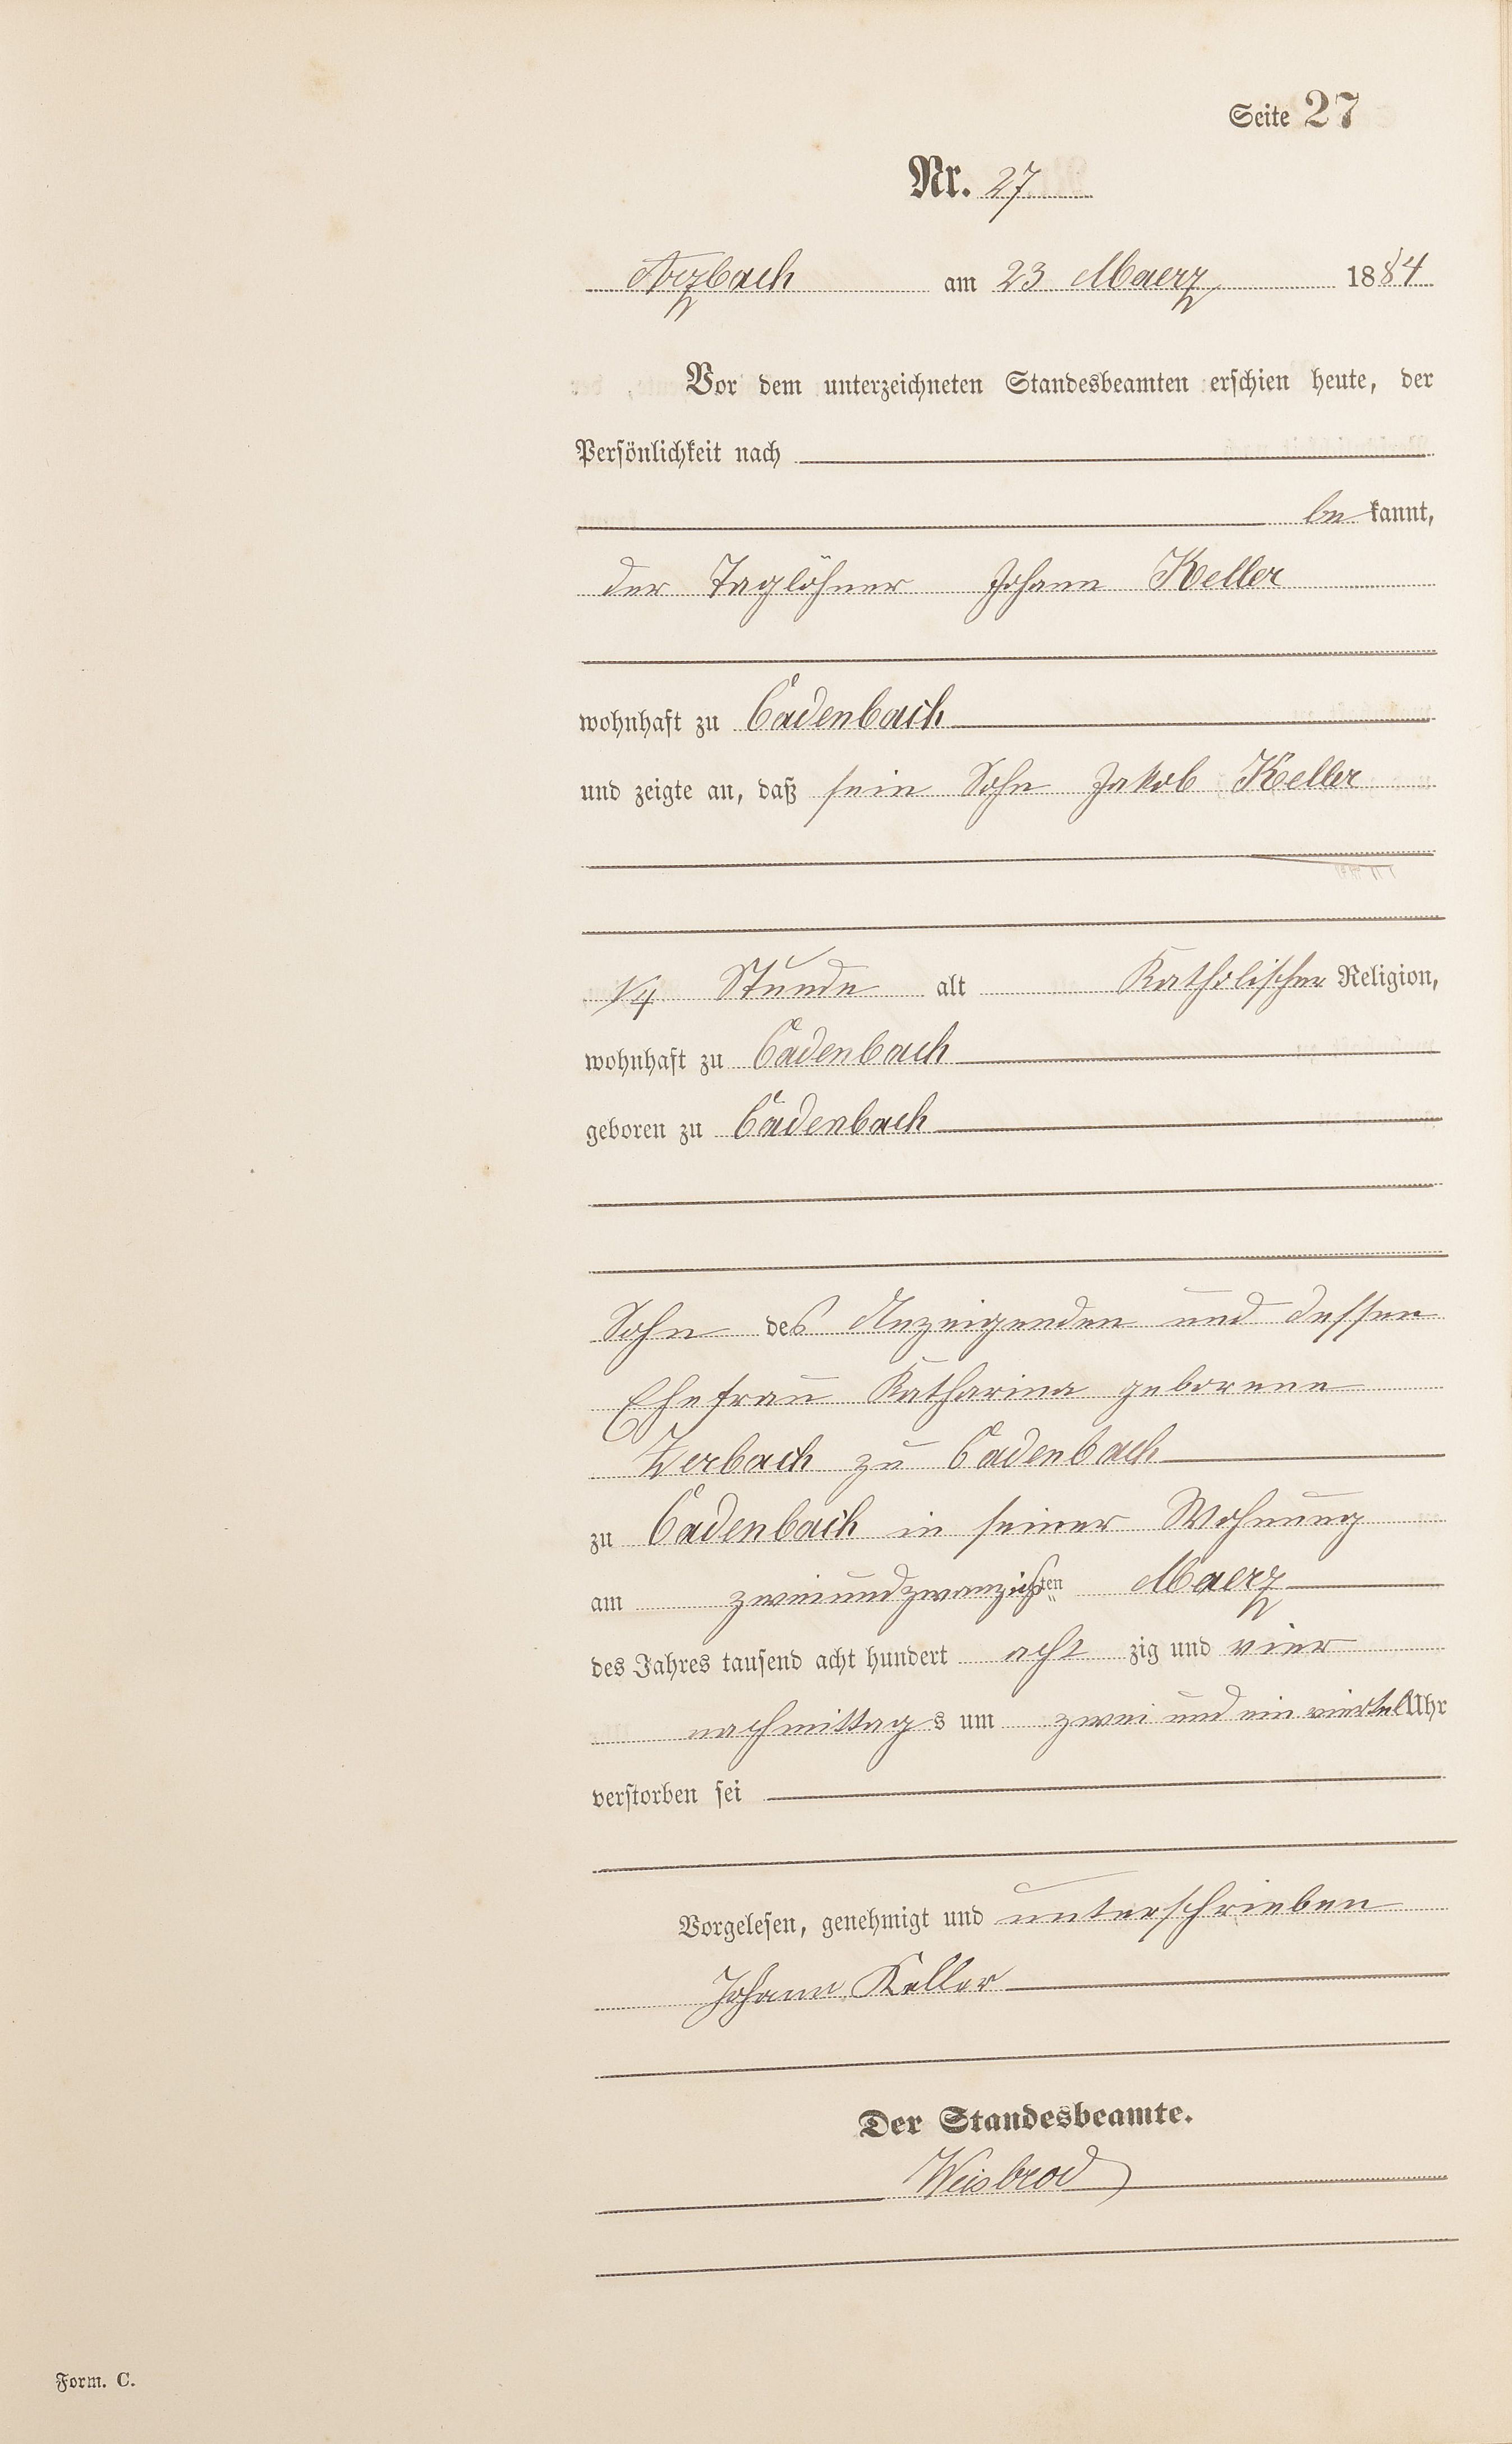 Seite 27
Nr. 27
Arzbach am 23 Maerz 1884
Vor dem unterzeichneten Standesbeamten erschien heute, der
Persönlichkeit nach
be kannt,
der Taglöhner Johann Keller
wohnhaft zu Cadenbach
und zeigte an, daß sein Sohn Jakob Keller
1/4 Stunde alt Katholischer Religion,
wohnhaft zu Cadenbach
geboren zu Cadenbach
Sohn des Anzeigenden und dessen
Ehefrau Katharina geborene
Zerbach zu Cadenbach
zu Cadenbach in seiner Wohnung
am zweiundzwanzigsten Maerz
des Jahres tausend acht hundert acht zig und vier
nachmittags um zwei und ein viertel Uhr
verstorben sei
Vorgelesen, genehmigt und unterschrieben
Johann Keller
Der Standesbeamte.
Weisbrod
Form. C.